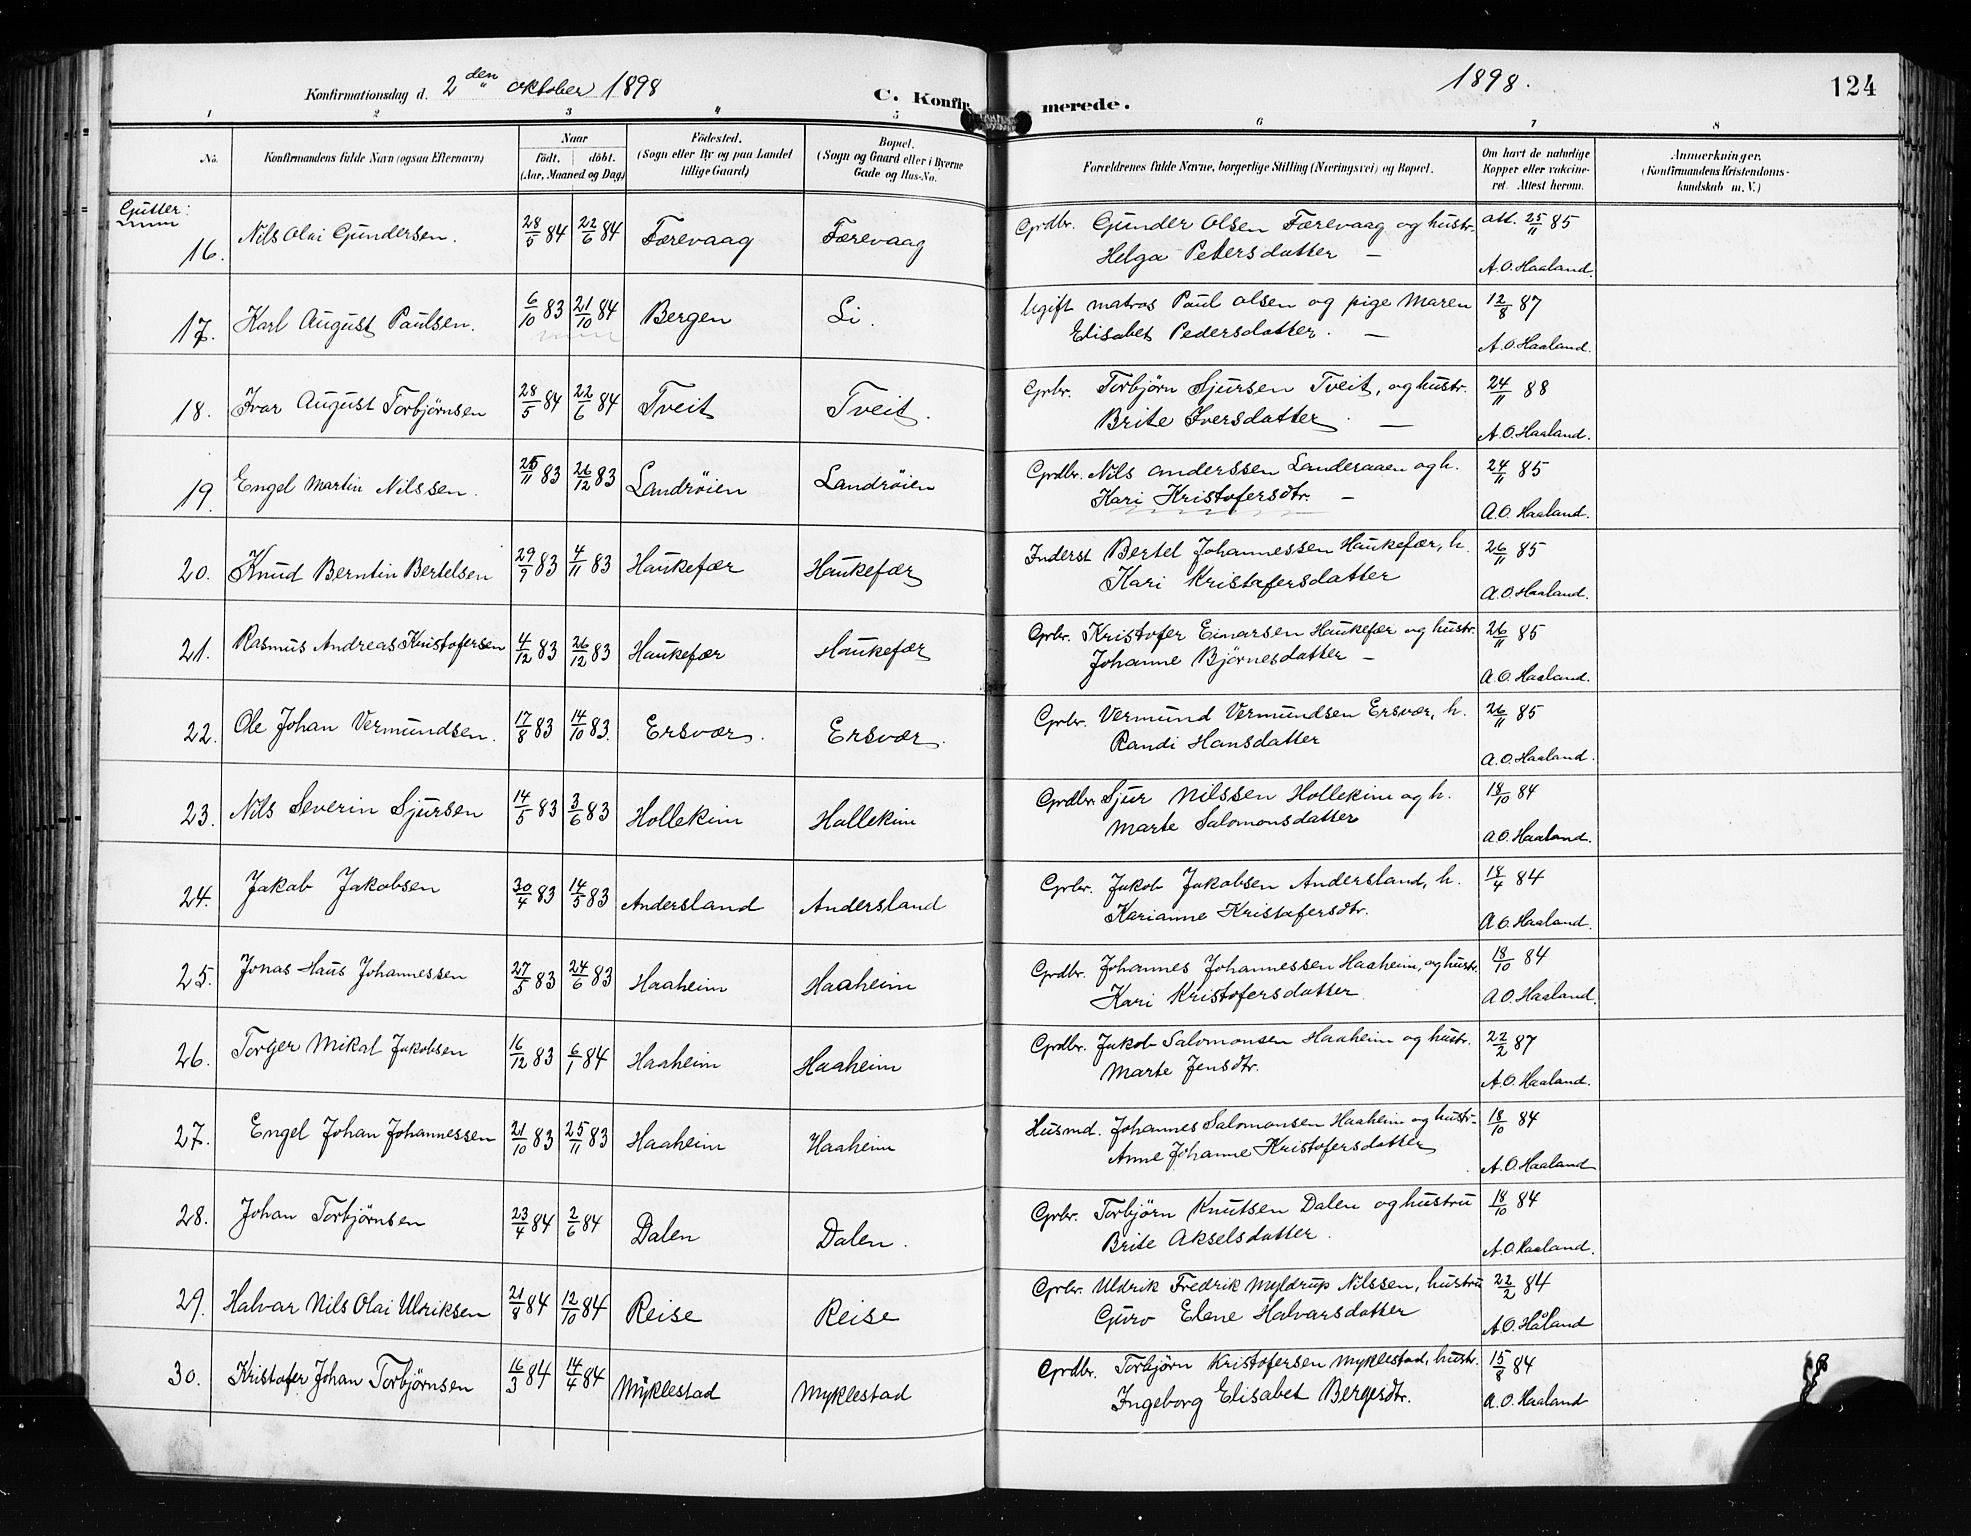 Konfirmationsdag d. 2den oktober 1898
C. Konfirmerede.
1898.
124
1 2 3 4 5 6 7 8
No.
Konfirmandens fulde Navn (ogsaa Efternavn)
Naar
födt. döbt.
(Aar, Maaned og Dag)
Födested.
(Sogn eller By og paa Landet
tillige Gaard)
Bopæl.
(Sogn og Gaard eller i Byerne
Gade og Hus-No.
Forældrenes fulde Navne, borgerlige Stilling (Næringsvei) og Bopæl.
Om havt de naturlige
Kopper eller vakcine-
ret. Attest herom.
Anmærkninger.
(Konfirmandens Kristendoms-
kundskab m. V.)
Gutter:
16. Nils Olai Gundersen. 28/5 84 22/6 84 Færevaag Færevaag Grdbr. Gunder Olsen Færevaag og hustr. att. 25/11 85
Helga Petersdatter — A.O. Haaland.
17. Karl August Paulsen. 6/10 83 21/10 84 Bergen Li. Ugift matros Paul Olsen og pige Maren 12/8 87
Elisabet Pedersdatter. — A.O. Haaland.
18. Ivar August Torbjørnsen 28/5 84 22/6 84 Tveit Tveit. Grbr. Torbjørn Sjursen Tveit, og hustr. 24/11 88
Brite Iversdatter — A.O. Haaland.
19. Engel Martin Nilssen. 25/11 83 26/12 83 Landrøien Landrøien Grdbr. Nils Anderssen Landeraaen og h. 24/11 85
Kari Kristofersdtr. — A.O. Haaland.
20. Knud Berntin Bertelsen 29/9 83 4/11 83 Haukefær Haukefær Inderst Bertel Johannessen Haukefær, h. 26/11 85
Kari Kristofersdatter A.O. Haaland.
21. Rasmus Andreas Kristofersen 4/12 83 26/12 83 Haukefær Haukefær Grbr. Kristofer Einarsen Haukefær og hustr. 26/11 85
Johanne Bjørnesdatter — A.O. Haaland.
22. Ole Johan Vermundsen. 17/8 83 14/10 83. Ersvær. Ersvær. Grbr. Vermund Vermundsen Ersvær, h. 26/11 85
Randi Hansdatter A.O. Haaland.
23. Nils Severin Sjursen 14/5 83 3/6 83 Hollekim Hollekim Grdbr. Sjur Nilssen Hollekim og h. 18/10 84
Marte Salomonsdatter A.O. Haaland.
24. Jakob Jakobsen 30/4 83 14/5 83 Andersland Andersland Grbr. Jakob Jakobsen Andersland, h. 18/4 84
Karianne Kristofersdtr. A.O. Haaland.
25. Jonas Haus Johannessen 27/5 83 24/6 83 Haaheim Haaheim Grdbr. Johannes Johannessen Haaheim, og hustr. 18/10 84
Kari Kristofersdatter. A.O. Haaland.
26. Torger Mikal Jakobsen 16/12 83 6/1 84 Haaheim Haaheim Grdbr. Jakob Salomonsen Haaheim og hustr. 22/2 87
Marte Jensdtr. A.O. Haaland.
27. Engel Johan Johannessen 21/10 83 25/11 83 Haaheim Haaheim Husmd. Johannes Salomonsen Haaheim og hustr. 18/10 84
Anne Johanne Kristofersdatter A.O. Haaland
28. Johan Torbjørnsen 23/4 84 2/6 84 Dalen Dalen. Grbr. Torbjørn Knutsen Dalen og hustru 18/10 84
Brite Akselsdatter. A.O. Haaland.
29. Halvar Nils Olai Ulriksen 21/8 84 12/10 84 Reise Reise Grbr. Uldrik Fredrik Myldrup Nilssen, hustru 22/2 84
Guro Elene Halvarsdatter A.O. Håland
30. Kristofer Johan Torbjørnsen 16/3 84 14/4 84 Myklestad Myklestad Grdbr. Torbjørn Kristofersen Myklestad, hustr. 15/8 84
Ingeborg Elisabet Bergesdtr. A.O. Haaland